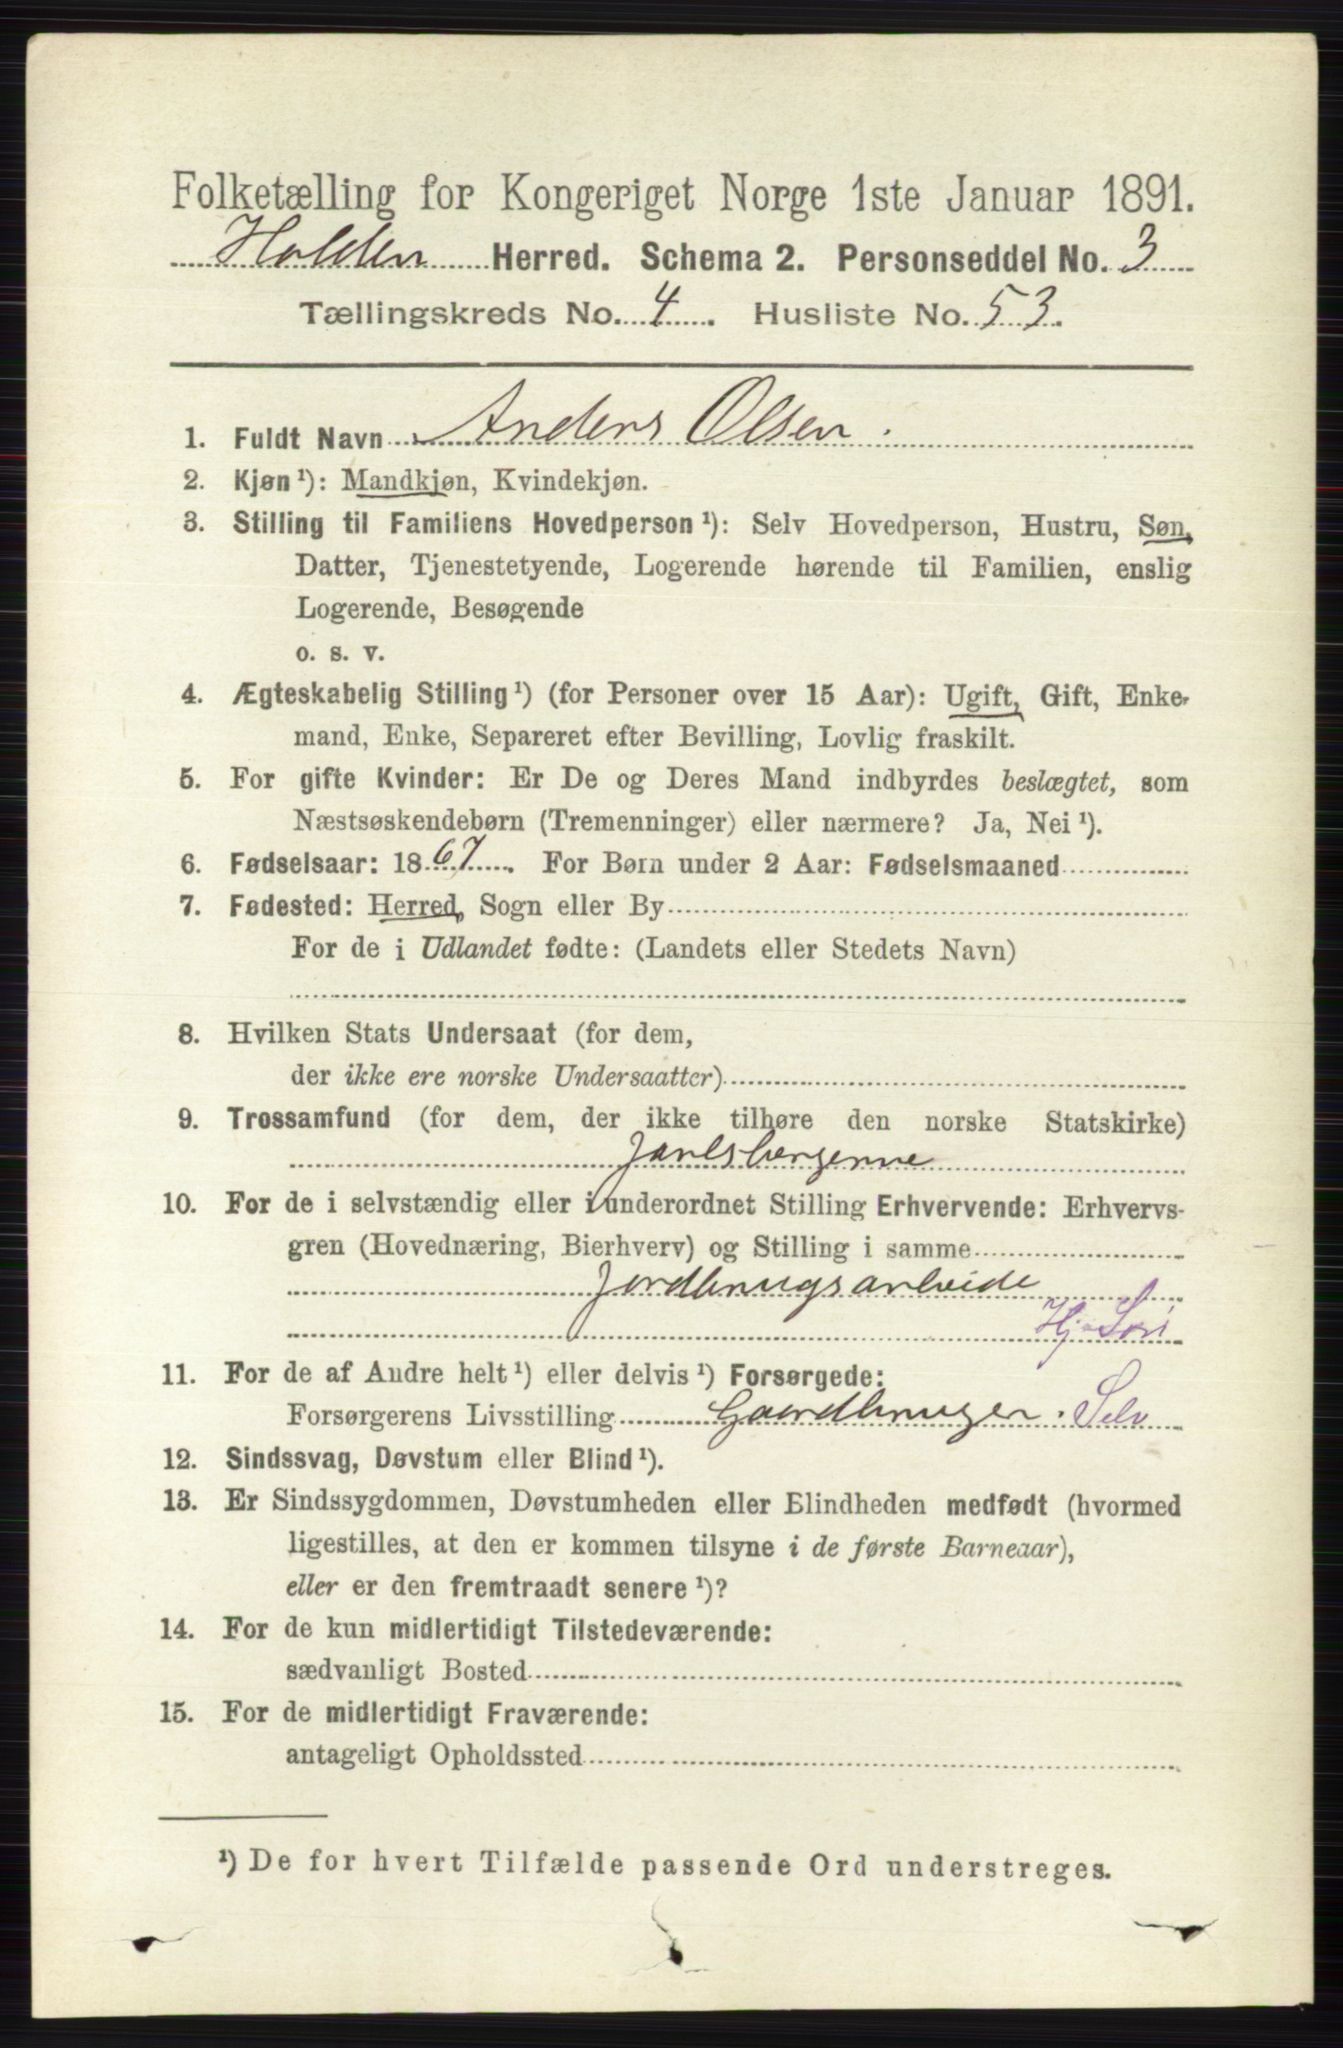 Folketælling for Kongeriget Norge 1ste Januar 1891.
Holden Herred. Schema 2. Personseddel No. 3
Tællingskreds No. 4. Husliste No. 53.
1. Fuldt Navn Anders Olsen.
2. Kjøn ¹): Mandkjøn, Kvindekjøn.
3. Stilling til Familiens Hovedperson ¹): Selv Hovedperson, Hustru, Søn,
Datter, Tjenestetyende, Logerende hørende til Familien, enslig
Logerende, Besøgende
o. s. v.
4. Ægteskabelig Stilling ¹) (for Personer over 15 Aar): Ugift, Gift, Enke-
mand, Enke, Separeret efter Bevilling, Lovlig fraskilt.
5. For gifte Kvinder: Er De og Deres Mand indbyrdes beslægtet, som
Næstsøskendebørn (Tremenninger) eller nærmere? Ja, Nei ¹).
6. Fødselsaar: 1867. For Børn under 2 Aar: Fødselsmaaned
7. Fødested: Herred, Sogn eller By
For de i Udlandet fødte: (Landets eller Stedets Navn)
8. Hvilken Stats Undersaat (for dem,
der ikke ere norske Undersaatter)
9. Trossamfund (for dem, der ikke tilhøre den norske Statskirke)
Jarlsbergerne
10. For de i selvstændig eller i underordnet Stilling Erhvervende: Erhvervs-
gren (Hovednæring, Bierhverv) og Stilling i samme
Jordbrugsarbeide
Hj. Søn
11. For de af Andre helt ¹) eller delvis ¹) Forsørgede:
Forsørgerens Livsstilling Gaardbruger. Selv
12. Sindssvag, Døvstum eller Blind ¹).
13. Er Sindssygdommen, Døvstumheden eller Blindheden medfødt (hvormed
ligestilles, at den er kommen tilsyne i de første Barneaar),
eller er den fremtraadt senere ¹)?
14. For de kun midlertidigt Tilstedeværende:
sædvanligt Bosted
15. For de midlertidigt Fraværende:
antageligt Opholdssted
¹) De for hvert Tilfælde passende Ord understreges.